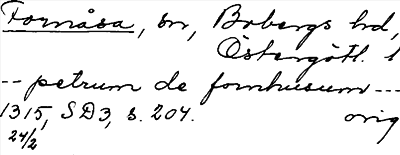 Fornåsa, sn, Bobergs hd,
Östergötl. l
-- petrum de fornhusum ---
1315, SD3, s. 204. orig
24/2